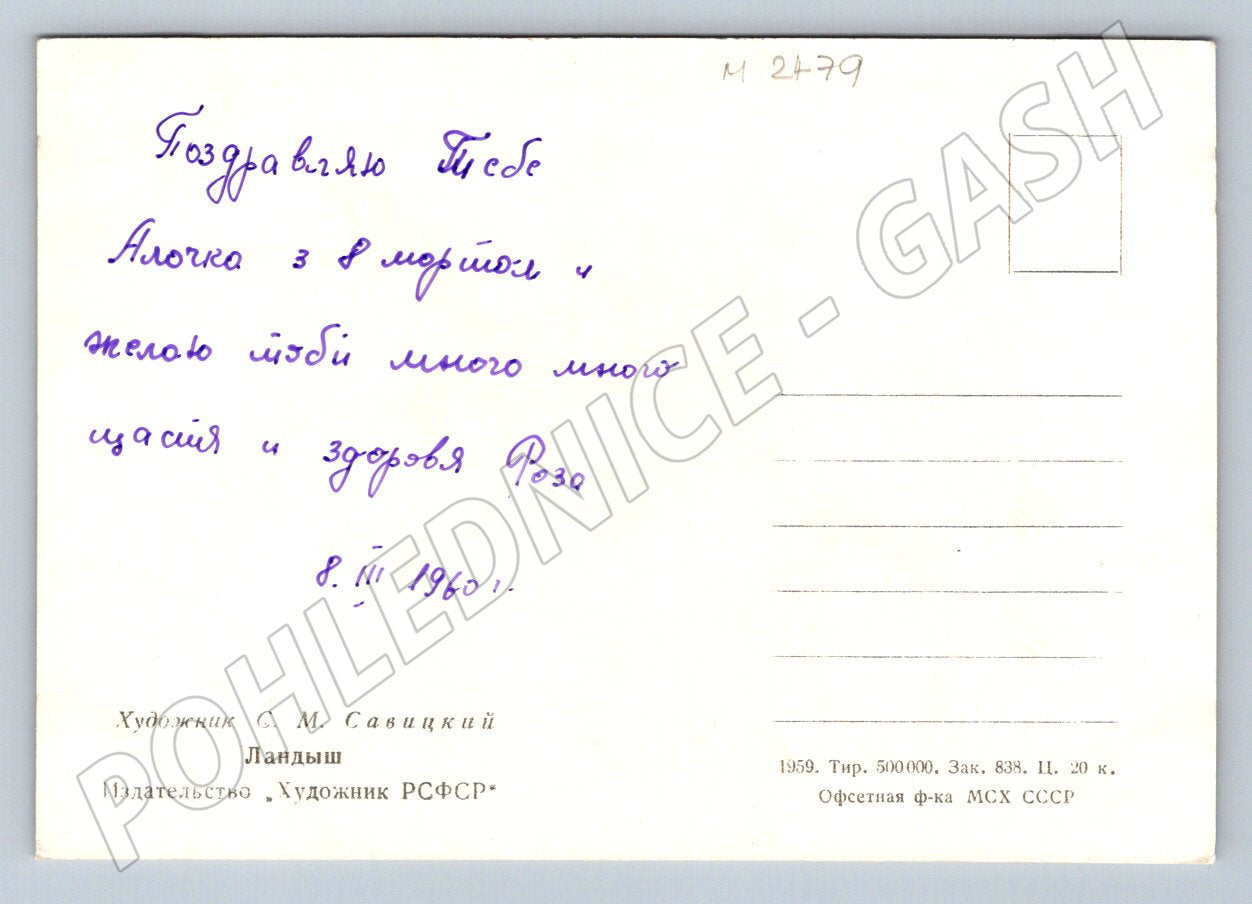 м 2479
Поздравляю Тебе
Алочка з 8 мортом и
желаю тэби много много
щастя и здоровя Роза
8. III 1960 г.
Художник С. М. Савицкий
Ландыш
Издательство „Художник РСФСР"
1959. Тир. 500000. Зак. 838. Ц. 20 к.
Офсетная ф-ка МСХ СССР
POHLEDNICE - GASH